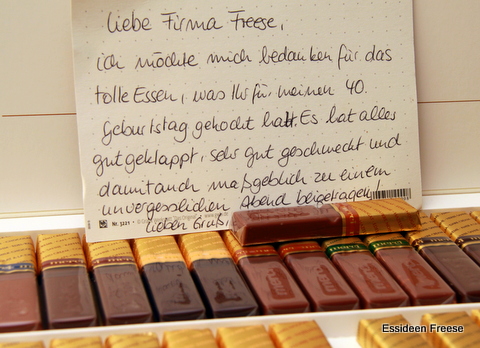 Liebe Firma Freese,
ich möchte mich bedanken für das
tolle Essen, was Ihr für meinen 40.
Geburtstag gekocht habt. Es hat alles
gut geklappt, sehr gut geschmeckt und
damit auch maßgeblich zu einem
unvergesslichen Abend beigetragen,
lieben Gruß,
Nr. 3221
merci
Essideen Freese